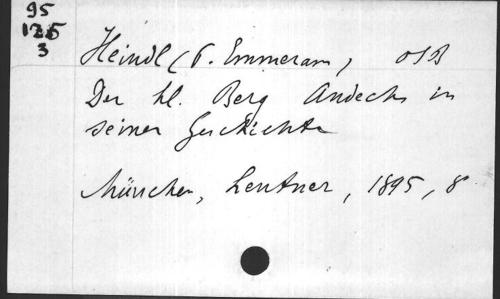 95
125
3
Heindl (P. Emmeram) OSB
Der hl. Berg Andechs in
seiner Geschichte
München, Lentner, 1895, 8°